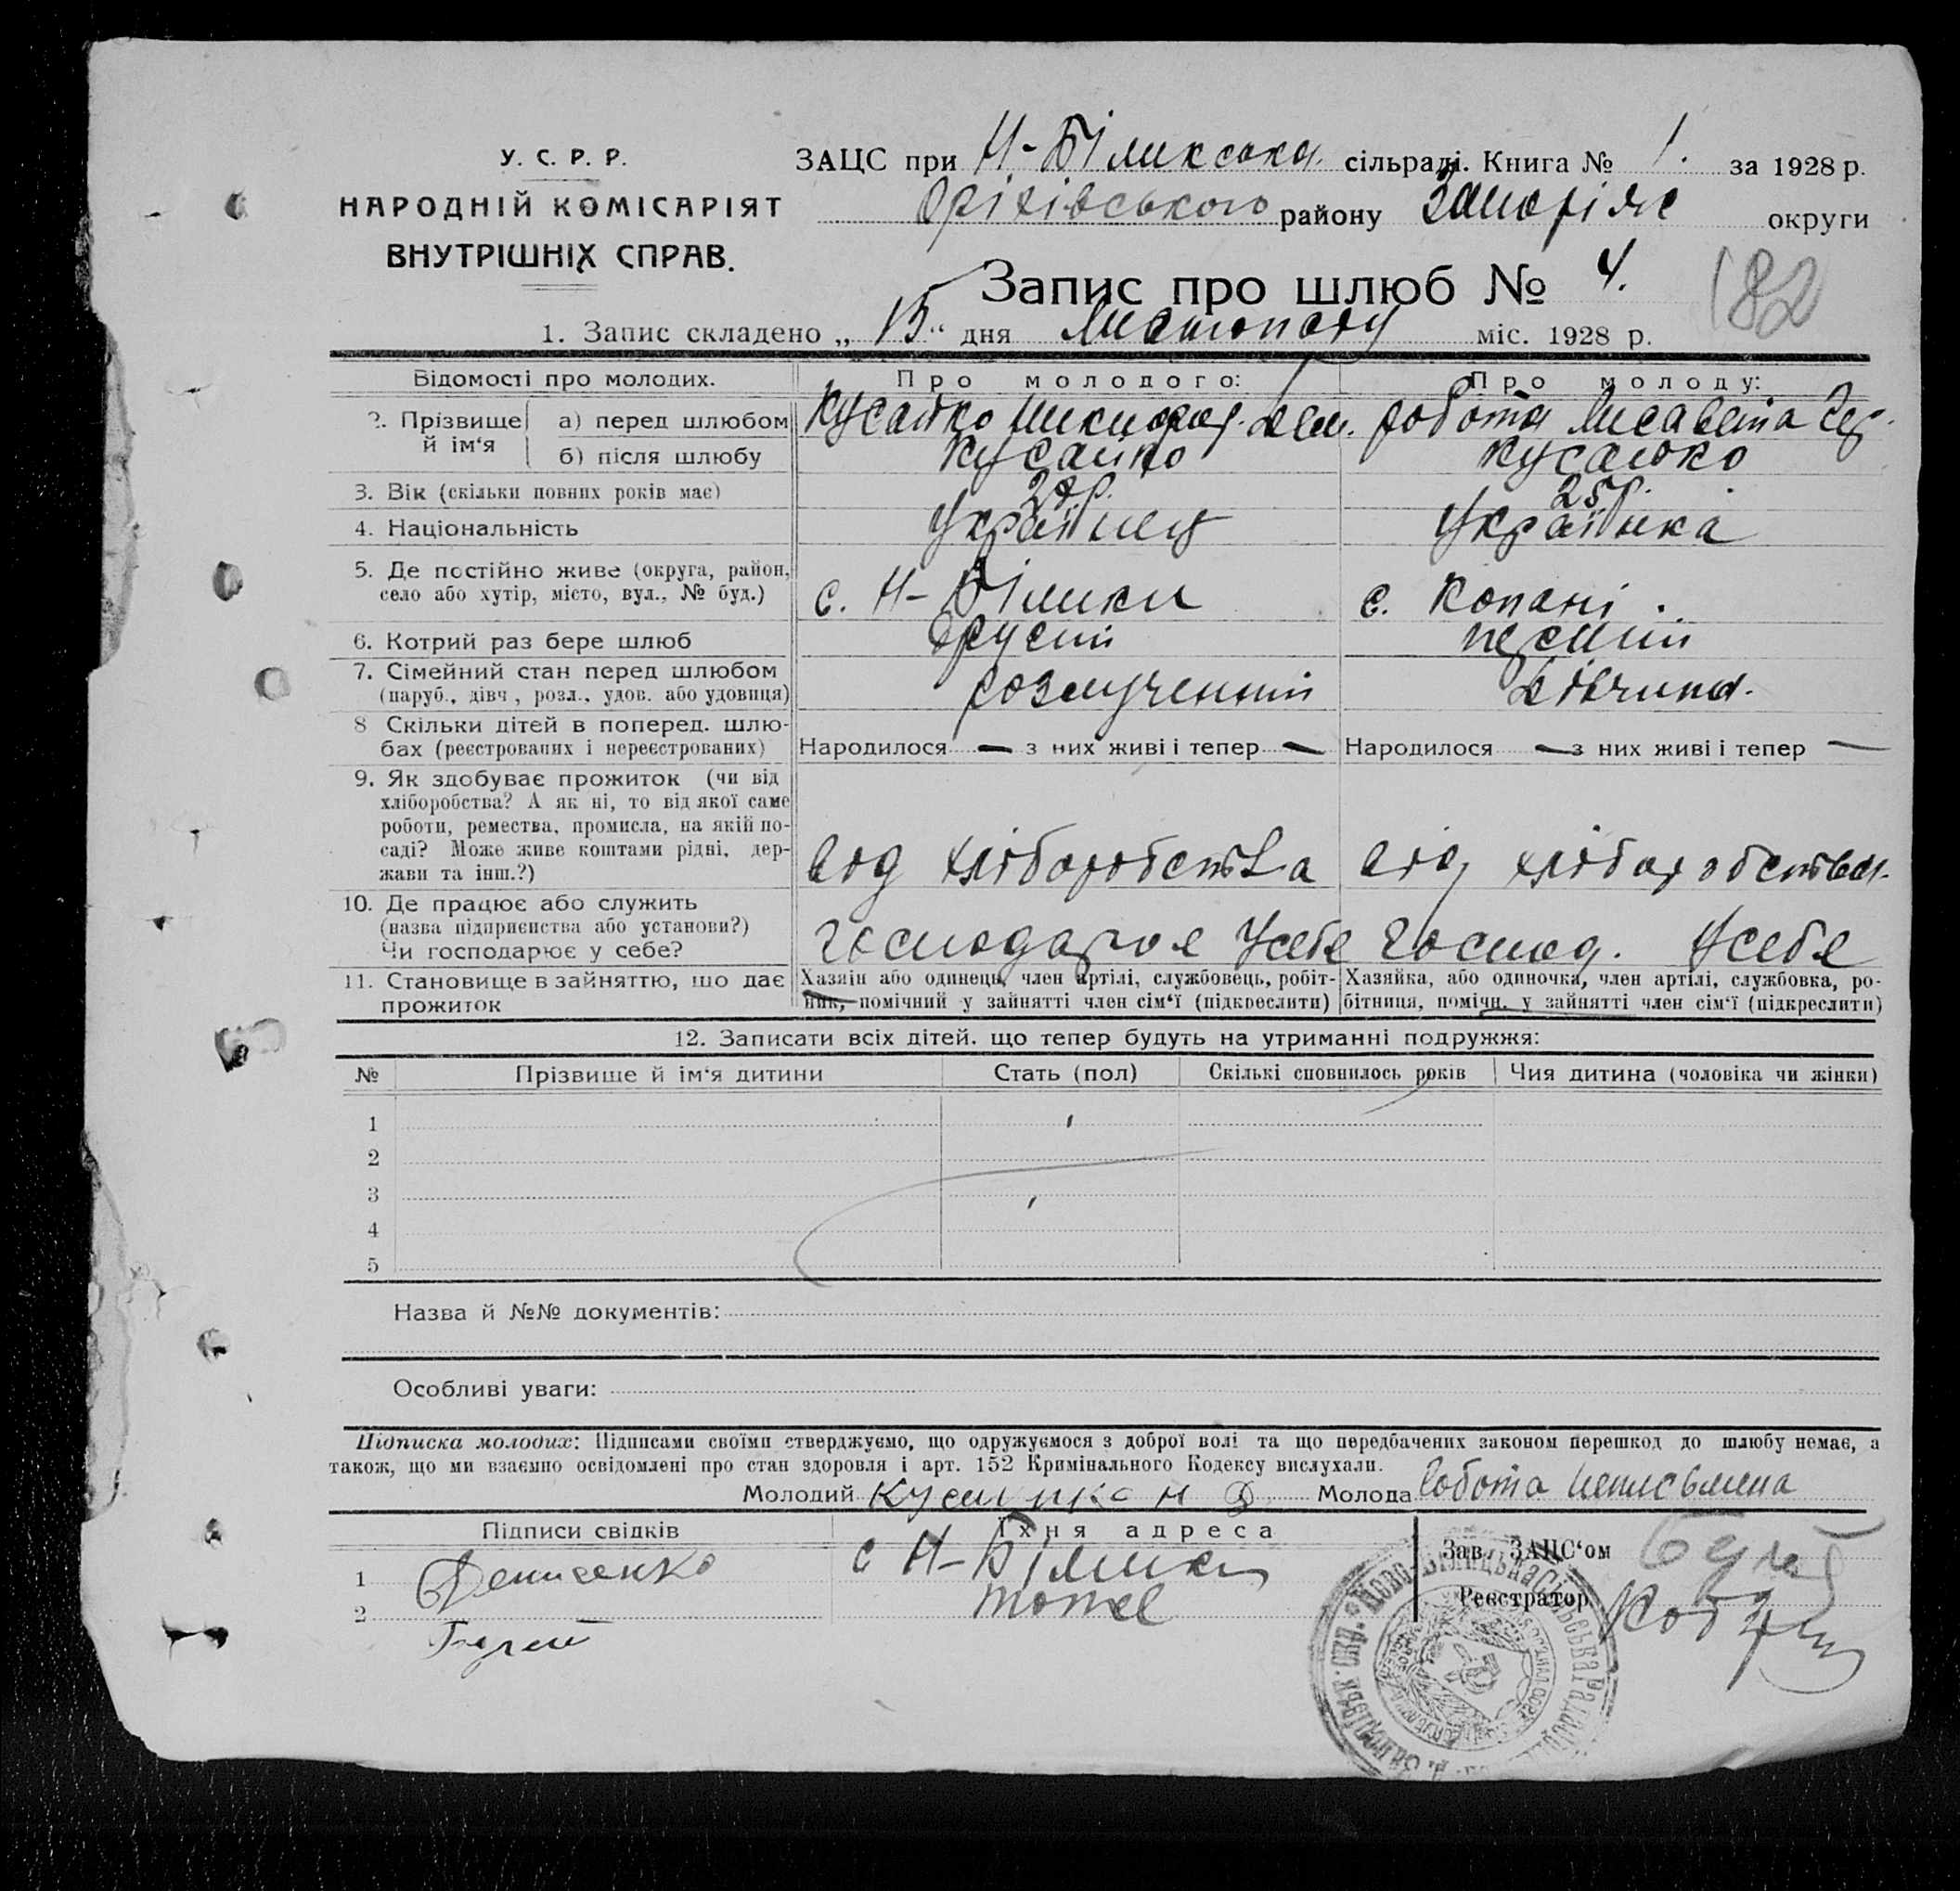 У. С. Р. Р.
НАРОДНІЙ КОМІСАРІЯТ
ВНУТРІШНІХ СПРАВ.
ЗАЦС при Н-Біликська сільраді. Книга № 1. за 1928 р.
Оріхівського району Запоріж округи
Запис про шлюб № 4.
182
1. Запис складено „ 15 “ дня Листопаду міс. 1928 р.
Відомості про молодих.
Про молодого:
Про молоду:
2. Прізвище й ім‘я
а) перед шлюбом
Кусайко Никифор Дем.
Робота Лисавета
б) після шлюбу
Кусайко
Кусайко
3. Вік (скільки повних років має)
25р.
4. Національність
Українец
Українка
5. Де постійно живе (округа, район,
село або хутір, місто, вул., № буд.)
с. Н-Білики
с. Копані.
6. Котрий раз бере шлюб
другий
первий
7. Сімейний стан перед шлюбом
(паруб., дівч, розл., удов. або удовиця)
розлученний
дівчина.
8 Скільки дітей в поперед. шлю-
бах (реєстрованих і нереєстрованих)
Народилося — з них живі і тепер —
Народилося — з них живі і тепер —
9. Як здобуває прожиток (чи від
хліборобства? А як ні, то від якої саме
роботи, ремества, промисла, на якій по-
саді? Може живе коштами рідні, дер-
жави та інш.?)
від хліборобства
від хліборобства
10. Де працює або служить
(назва підприємства або установи?)
Чи господарює у себе?
господарює Усебе
господ. Усебя
11. Становище в зайняттю, що дає
прожиток
Хазяін або одинець, член артілі, службовець, робіт-
ник, помічний у зайнятті член сім‘ї (підкреслити)
Хазяйка, або одиночка, член артілі, службовка, ро-
бітниця, помічн. у зайнятті член сім‘ї (підкреслити)
12. Записати всіх дітей. що тепер будуть на утриманні подружжя:
№ Прізвище й ім‘я дитини Стать (пол) Скількі сповнилось років Чия дитина (чоловіка чи жінки)
1
2
3
4
5
Назва й №№ документів:
Особливі уваги:
Підписка молодих: Підписами своїми стверджуємо, що одружуємося з доброї волі та що передбачених законом перешкод до шлюбу немає, а
також, що ми взаємно освідомлені про стан здоровля і арт. 152 Кримінального Кодексу вислухали.
Молодий Кусайко Н Д Молода Робота неписьмена
Підписи свідків
Їхня адреса
Зав. ЗАЦС‘ом
1 Денисенко
с Н-Білики
2
тоже
Реєстратор